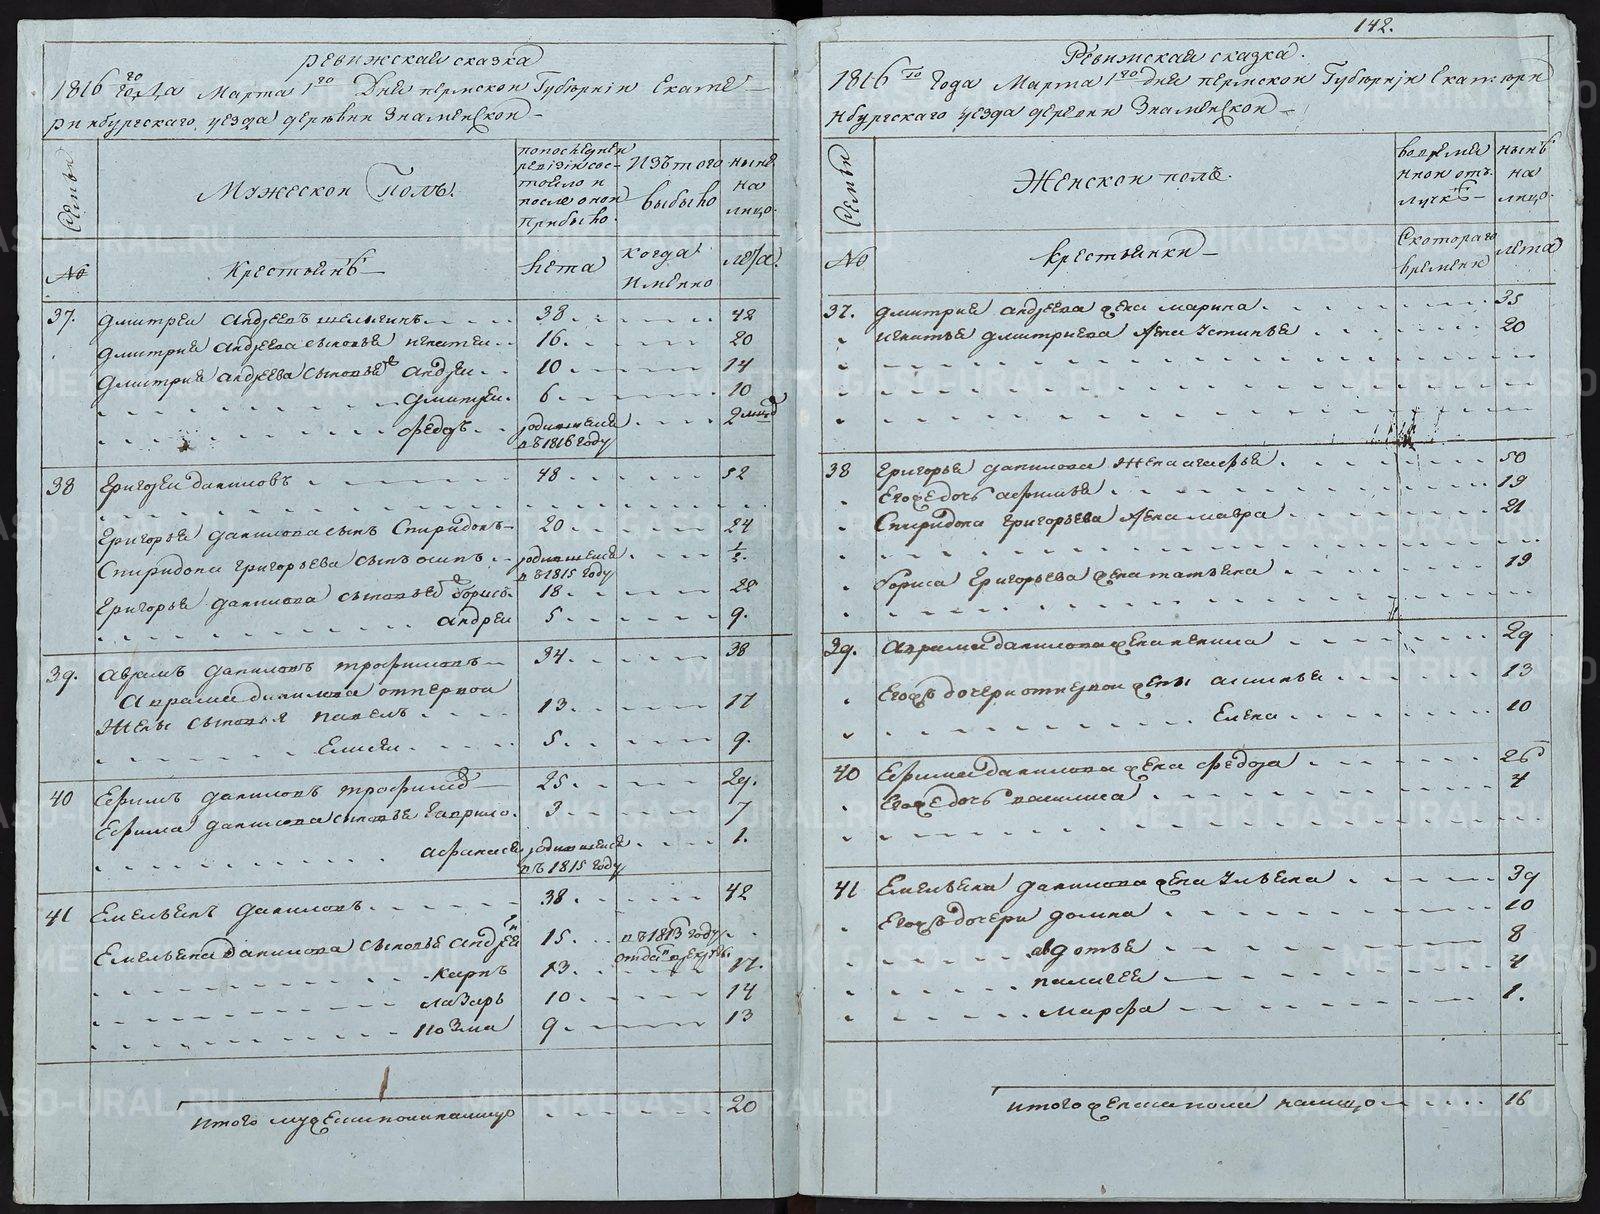 ревижская сказка
1816го года Марта 1го Дня пермской Губернiи Екате-
ринбургскаго уезда деревни Знаменской
Семьи
Мужеской полъ.
попоследней
ревiзiи сос-
тояло и
после оной
прибыло.
изътого
выбыло
ныне
на
лицо.
№
Крестьянъ
лета
когда
имянно
лета.
37. дмитреи андреевъ 38 42
дмитрия андреева сыновья игнатеи 16. 20
дмитрия андреева сыновья андреи 10 14
дмитреи. 6 10
федоръ родившеися 2 мид
въ 1816 году
38 Григореи даниловъ 48 52
Григорья данилова сынъ Спиридонъ 20 24
Спиридона григорьева сынъ осипъ родившеися 1/2.
въ 1815 году
Григорья данилова сыновья борисъ 18 22
андреи 5 9.
39. аврамъ даниловъ трофимовъ 34. 38
аврама данилова отпервои
жены сыновья павелъ 13. 17
Елисеи 5 9.
40 Ефимъ даниловъ трофимов 25. 29.
Ефима данилова сыновья гаврило. 3 7
афанасеи родившеися 1.
въ 1815 году
41 Емельянъ даниловъ 38 42
Емельяна данилова сыновья андреи 15. въ 1813 году
отданъ врекруты.
карпъ 13. 17.
лазарь 10 14
Козма 9 13
итого мужеска пола налицо 20
142.
Ревижская сказка.
1816го Года Марта 1го дня пермской Губернiи Екатери
нбургскаго уезда деревни Знаменской
Семьи
Женской полъ.
вовремянной отъ
лучкѣ
нынѣ
на
лицо.
№
крестьянки
Скотораго
времени
лета
37. дмитрия андреева жена марина 35
игнатья дмитриева жена устинья 20
38 григорья данилова жена агафья 50
Егожъ дочь афимья 19
Спиридона григорьева жена мавра 21
бориса григорьева жена татьяна 19
39. аврама данилова жена ненила 29
Егожъ дочери отпервои жены аксинья 13
Елена 10
40 Ефима данилова жена федора 26
Егожъ дочь василиса 4
41 Емельяна данилова жена ульяна 39
Егожъ дочери домна 10
авдотья 8
палагея 4
марфа 1.
итого женска пола налицо 16